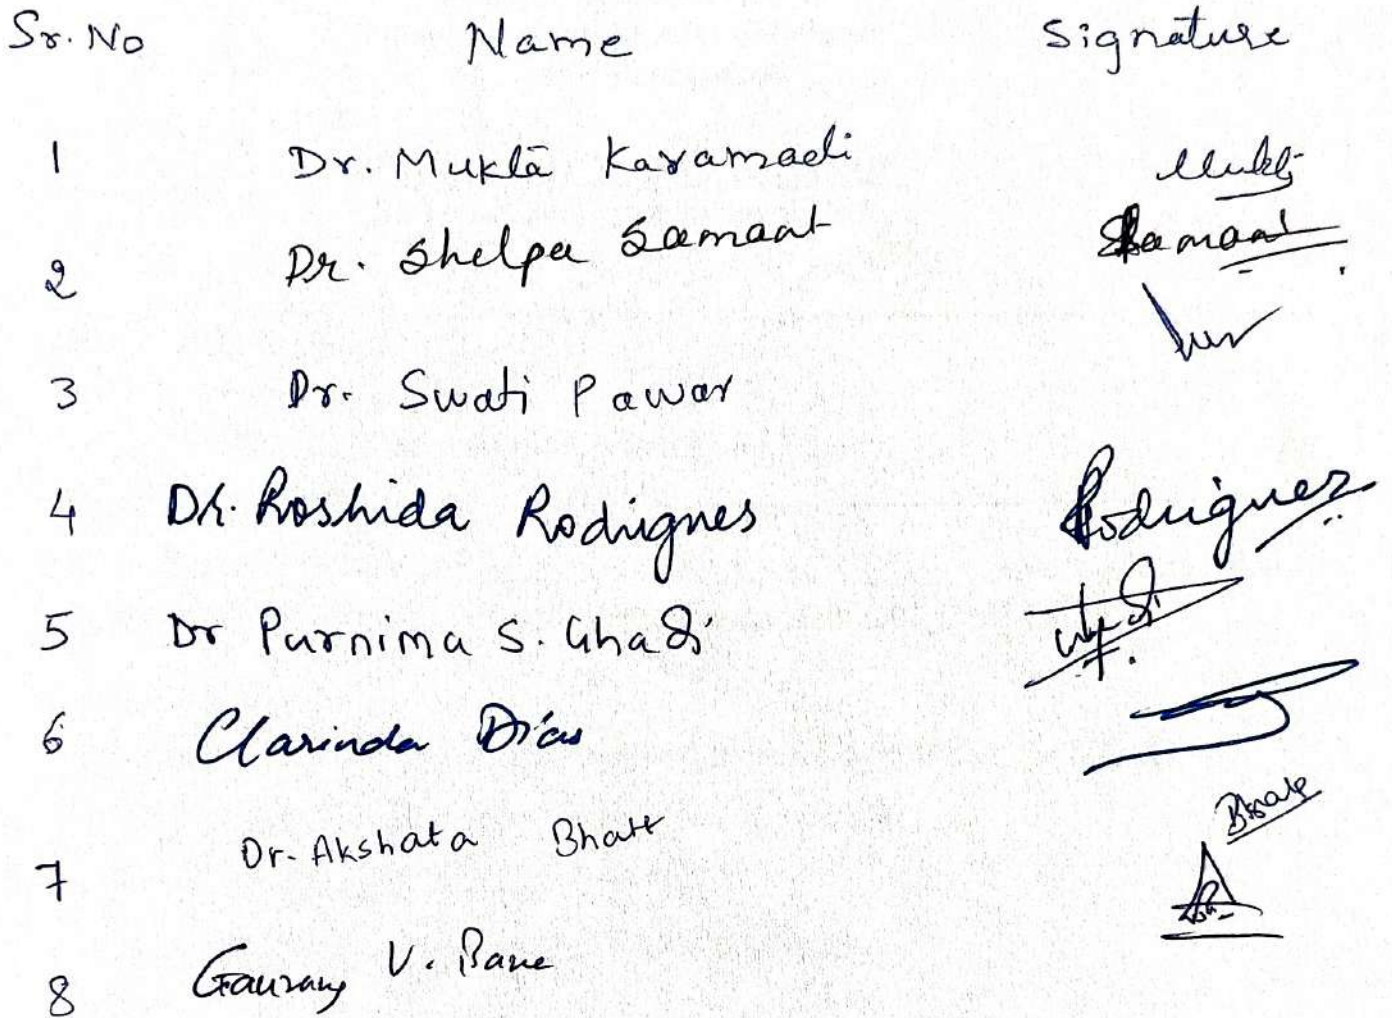 Sr. No Name Signature
1 Dr. Mukta Karamadi Mukta
2 Dr. Shelpa Samant Samant
3 Dr. Swati Pawar
4 Dr. Roshida Rodrigues Rodrigues
5 Dr Purnima S. Ghadi
6 Clarinda Dias
7 Dr. Akshata Bhatt Bhatt
8 Gaurang V. Bane